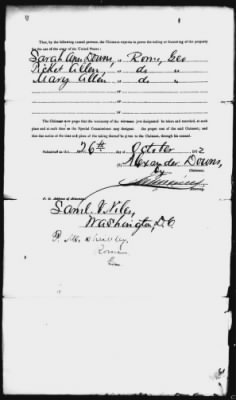 By the following named persons, the Claimant expects to prove the taking or furnishing of the property
for the use of the army of the United States:
Sarah Ann Downs, Rome, Geo
Picket Allen, do "
Mary Allen do "
The Claimant now prays that the testimony of the witnesses
place and at such time as the Special Commissioner may designate the prayer cost of the said Claimant, and
that due notice of the time and place of the taking thereof be given to the Claimant, through his counsel.
Submitted on this 26th day of October
Alexander Downs,
Claimant.
By
P. O. Address of Attorney:
Saml. V. Niles,
Washington, D.C.
Rome
Geo